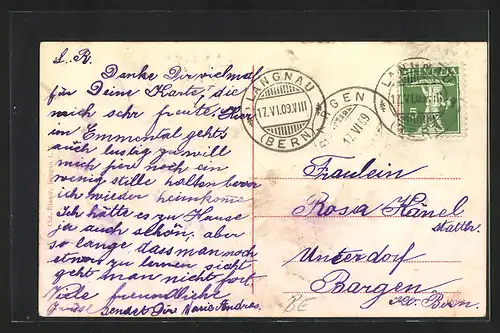 L. R.
Danke Dir vielmal
für Deine Karte, die
mich sehr freute. Hier
im Emmental gehts
auch lustig zu will
mich jez noch ein
wenig stille halten bevor
ich wieder heimkome.
Ich hätte es zu Hause
ja auch schön, aber
so lange dass man noch
etwas zu lernen sieht
geht man nicht fort
Viele freundliche
Grüsse sendet Dir Marie Andres.
LANGNAU
17.VI.09.VIII
(BERN)
BARGEN
17.VI.09
LANGNAU
17.VI.09.VIII
(BERN)
HELVETIA
5
Fräulein
Rosa Känel
Unterdorf
Bargen
Kt. Bern.
BE